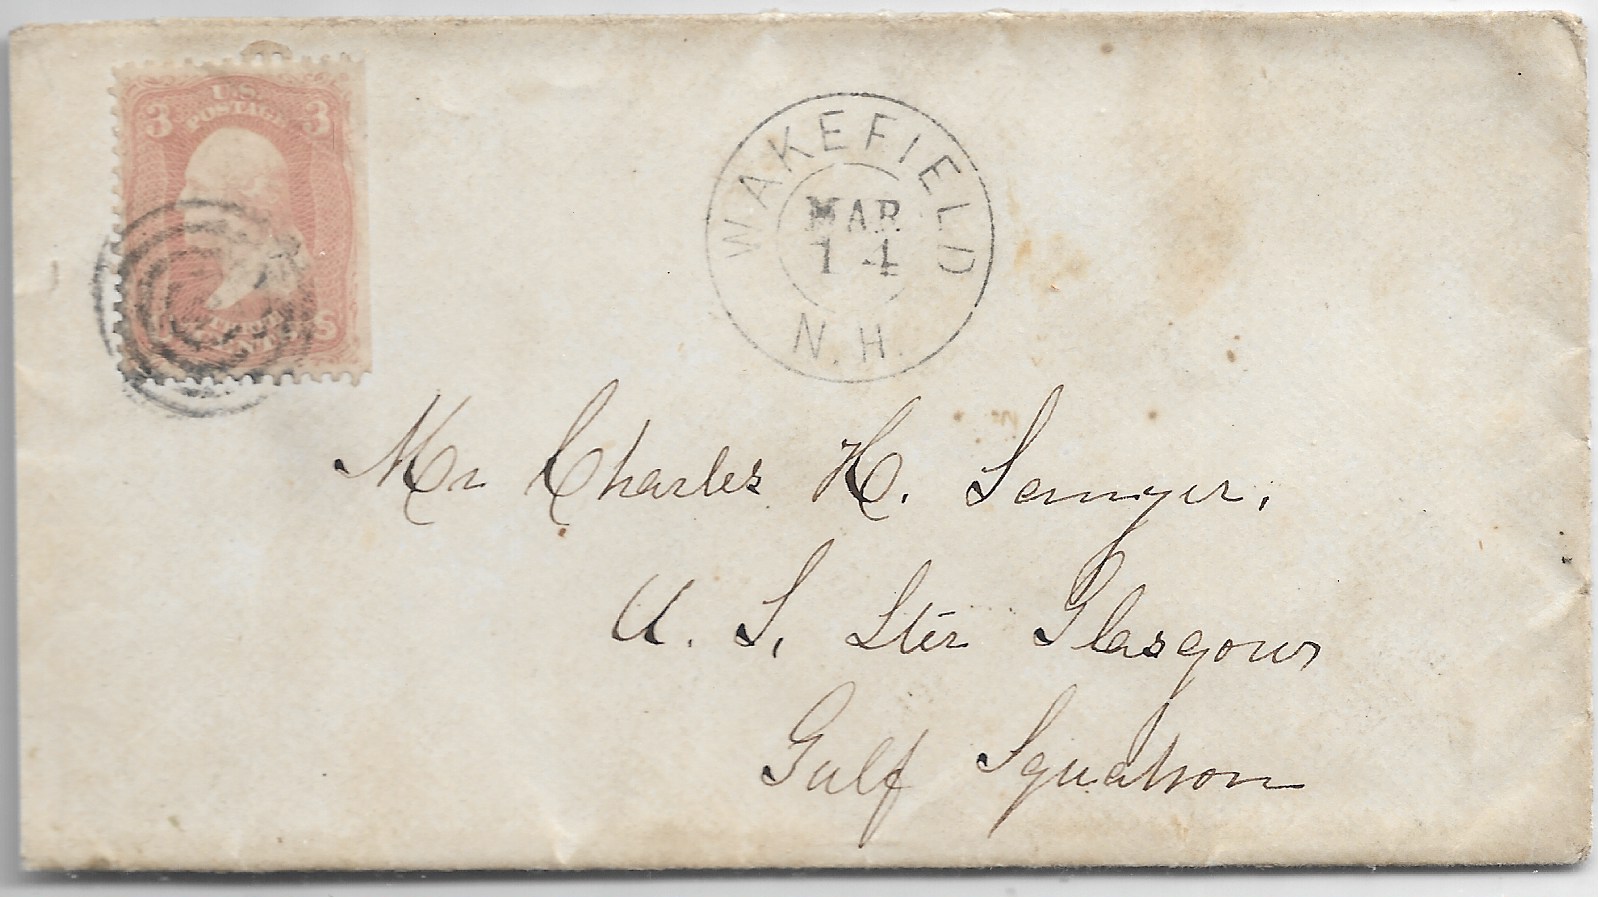 U.S.
POSTAGE
3 3
WAKEFIELD
MAR
14
N.H.
Mr Charles H. Sawyer,
U. S. Ster Glasgow
Gulf Squadron